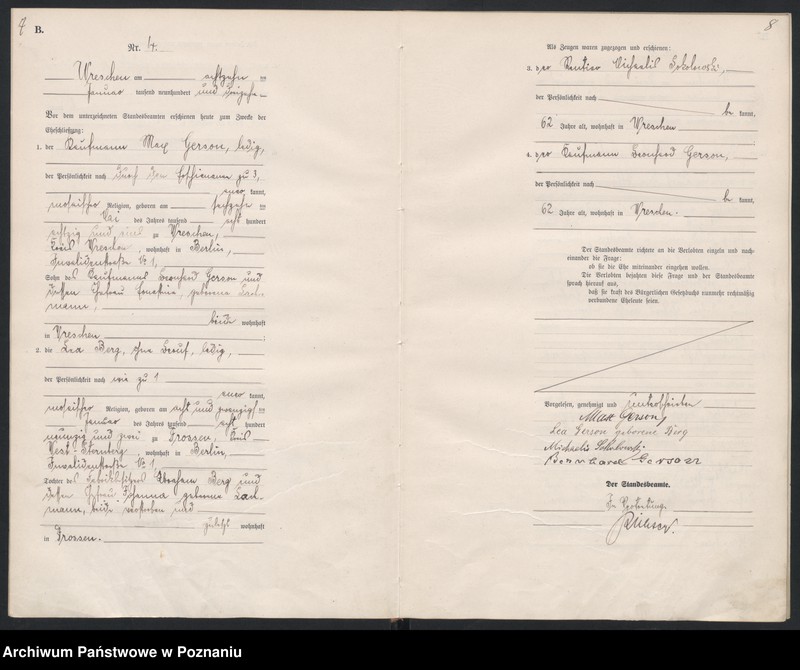 7
B.
Nr. 4.
Wreschen am achtzehn ten
Januar tausend neunhundert und dreizehn
Vor dem unterzeichneten Standesbeamten erschienen heute zum Zwecke der
Eheschließung:
1. der Kaufmann Max Gerson, ledig,
der Persönlichkeit nach durch den zu 3,
kannt,
mosaischer Religion, geboren am sechzehn ten
Mai des Jahres tausend acht hundert
achtzig und eins zu Wreschen,
Kreis Wreschen, wohnhaft in Berlin,
Invalidenstraße № 1,
Sohn des Kaufmanns Bernhard Gerson und
dessen Ehefrau Ernestine, geborene
mann,
beide wohnhaft
in Wreschen ;
2. die Lea Berg, ohne Beruf, ledig,
der Persönlichkeit nach wie zu 1
kannt,
mosaischer Religion, geboren am acht und zwanzig ten
Januar des Jahres tausend acht hundert
neunzig und zwei zu Drossen, Kreis
West-Sternberg, wohnhaft in Berlin,
Invalidenstraße № 1,
Tochter des Abraham Berg und
dessen Ehefrau Johanna geborene
mann, beide verstorben und
zuletzt wohnhaft
in Drossen.
8
Als Zeugen waren zugezogen und erschienen:
3. der Rentier Michaelis Sokolowski,
der Persönlichkeit nach be kannt,
62 Jahre alt, wohnhaft in Wreschen
4. der Kaufmann Bernhard Gerson,
der Persönlichkeit nach be kannt,
62 Jahre alt, wohnhaft in Wreschen.
Der Standesbeamte richtete an die Verlobten einzeln und nach-
einander die Frage:
ob sie die Ehe miteinander eingehen wollen.
Die Verlobten bejahten diese Frage und der Standesbeamte
sprach hierauf aus,
daß sie kraft des Bürgerlichen Gesetzbuchs nunmehr rechtmäßig
verbundene Eheleute seien.
Vorgelesen, genehmigt und unterschrieben
Max Gerson
Lea Gerson geborene Berg
Michaelis Sokolowski
Bernhard Gerson
Der Standesbeamte.
In Vertretung.
Archiwum Państwowe w Poznaniu